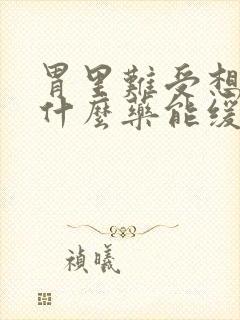 胃里難受想
什麼藥能緩
禎曦